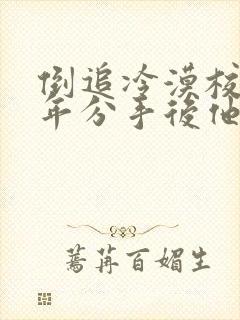 倒追冷漠校
年分手後他
蔫苒百媚生